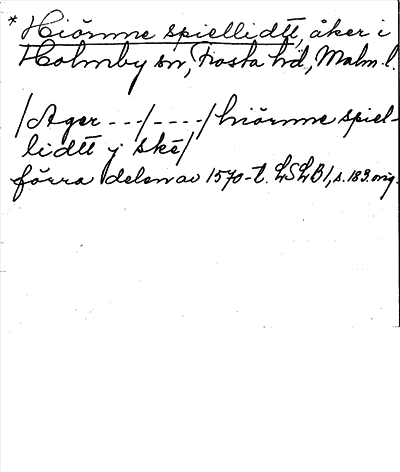 * Hiörnne spiellidtt, åker i
Holmby sn, Frosta hd, Malm. l.
/Ager ---/----/hiörnne spiel-
lidtt j skē/
förra delen av 1570-t. LSLB1, s. 183. orig.